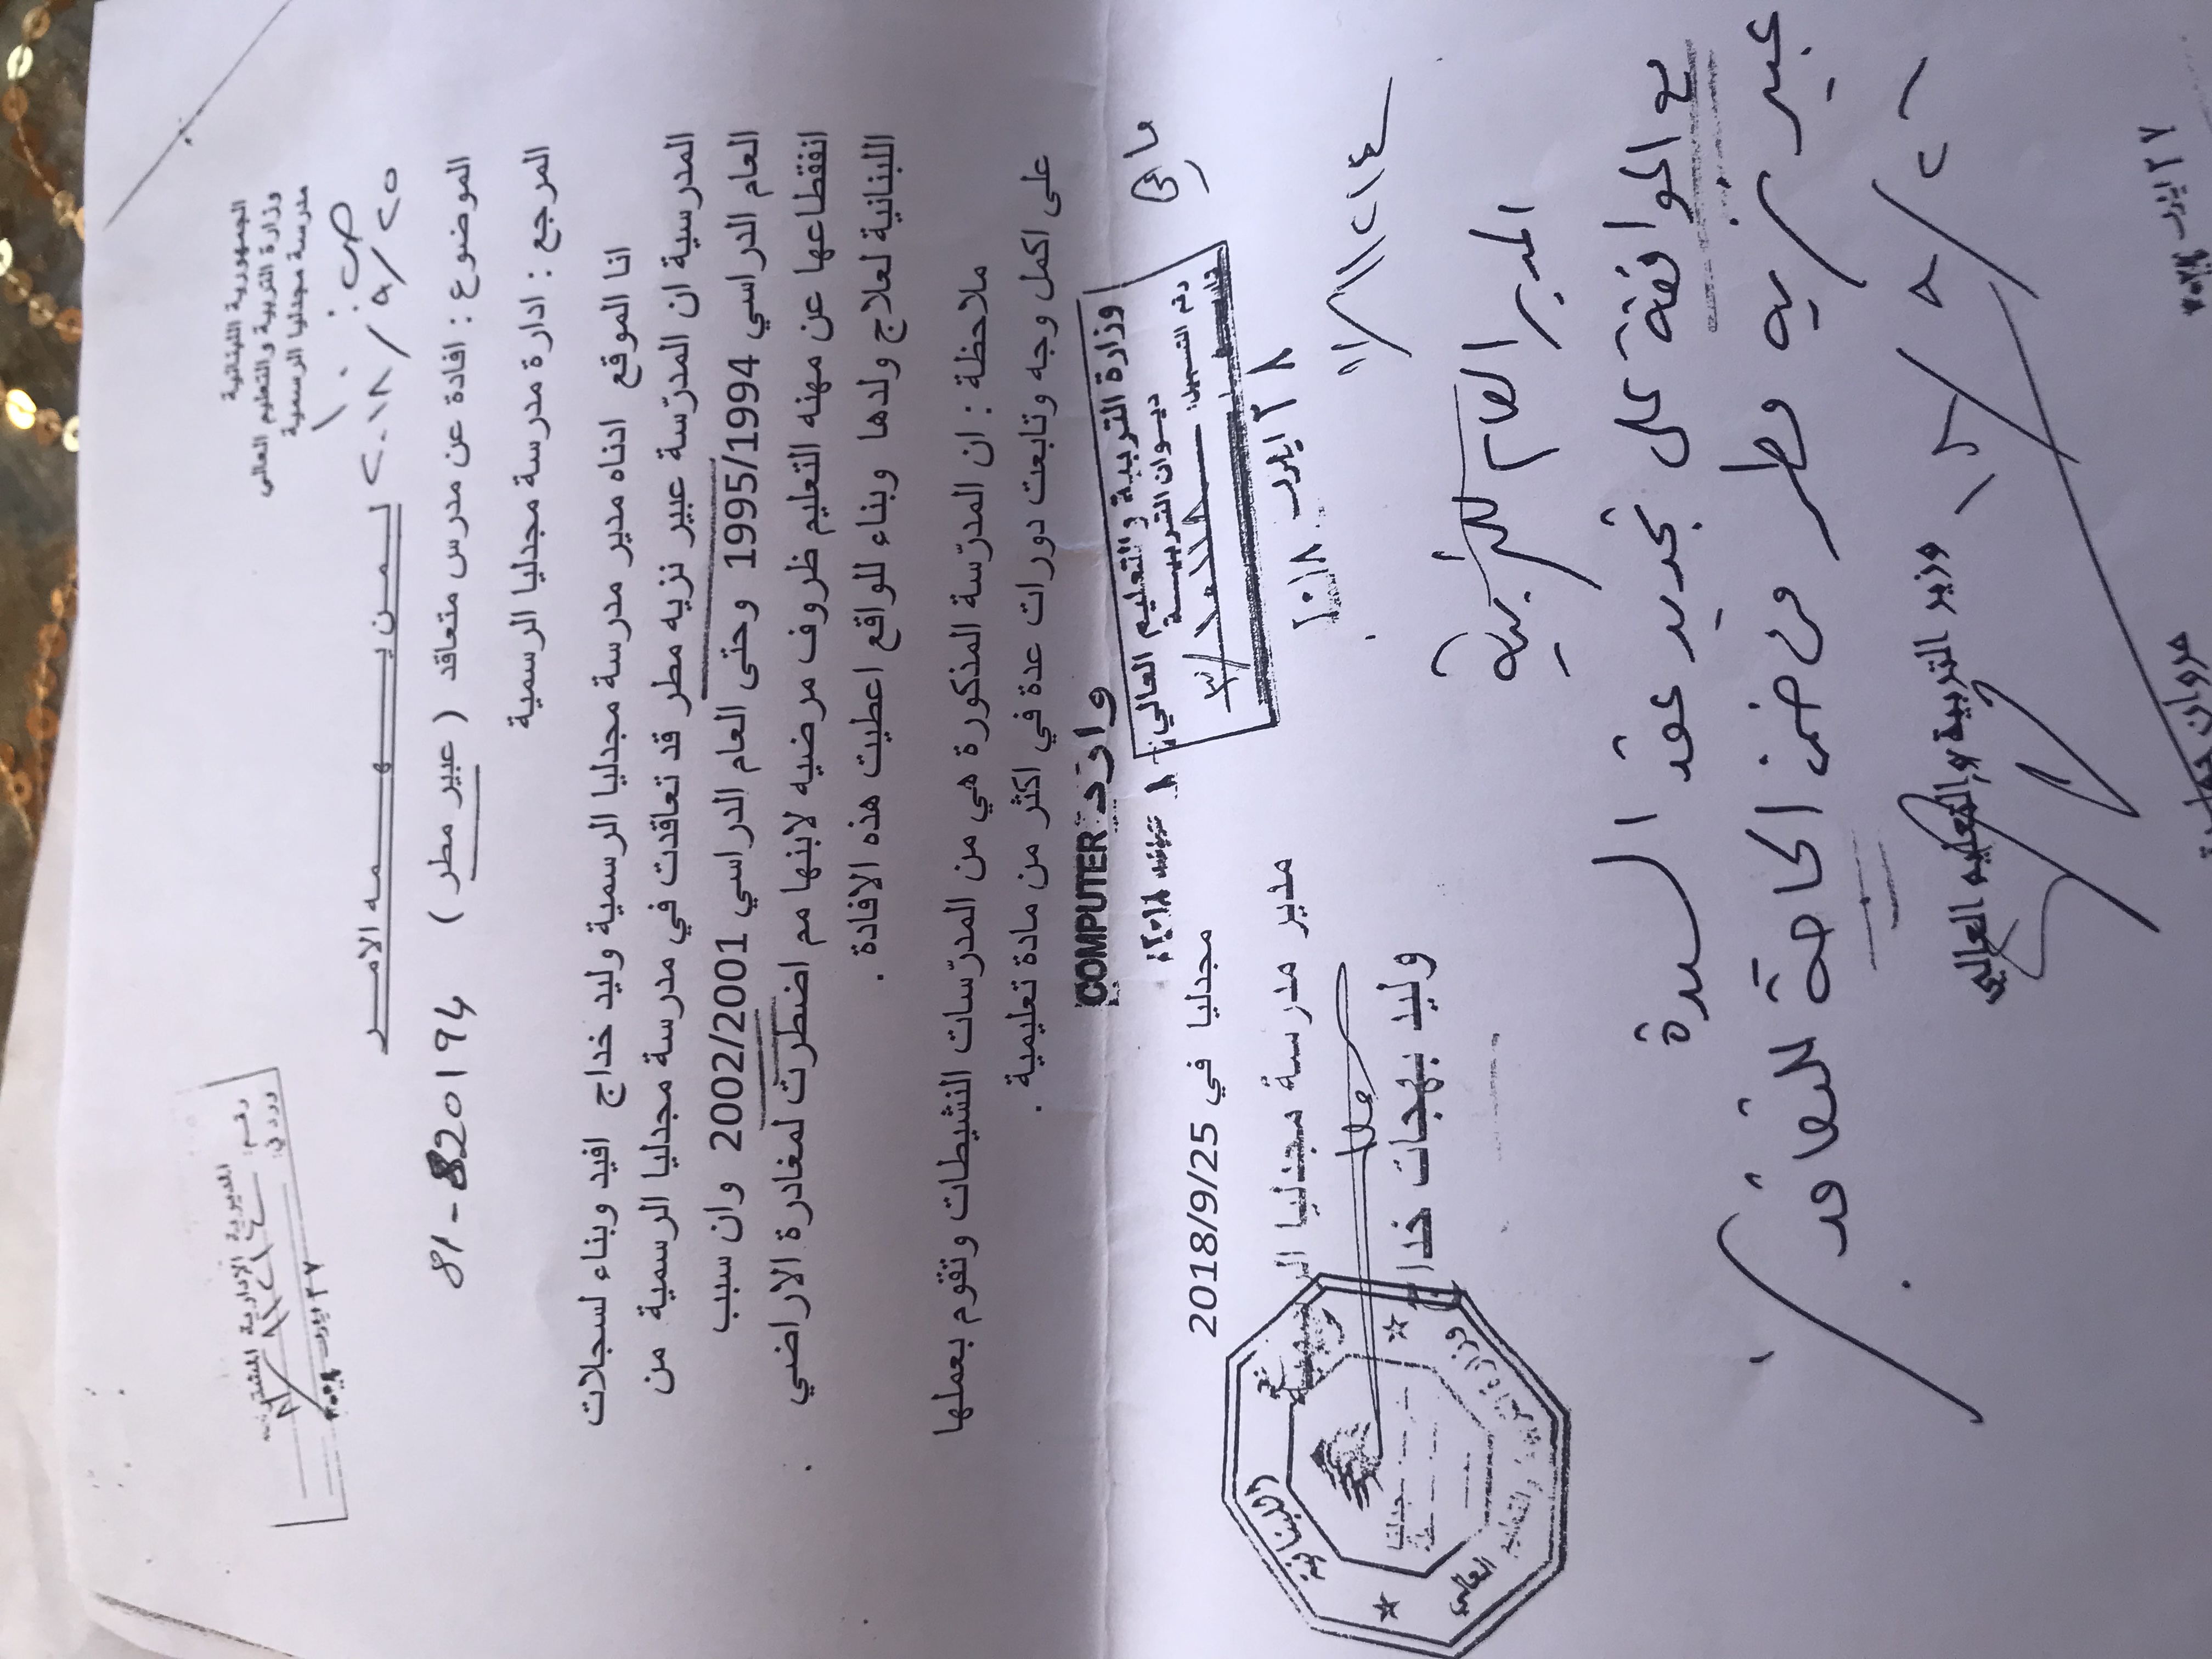 الجمهورية اللبنانية
وزارة التربية والتعليم العالي
مدرسة مجدليا الرسمية
٢٠١٨/٩/٢٥
المديرية الادارية المشتركة
رقم:
ورد في:
لـمـن يـهـمـه الامـر
الموضوع : افادة عن مدرس متعاقد ( عبير مطر ) 81-820194
المرجع : ادارة مدرسة مجدليا الرسمية
انا الموقع ادناه مدير مدرسة مجدليا الرسمية وليد خداج افيد وبناء لسجلات
المدرسية ان المدرّسة عبير نزيه مطر قد تعاقدت في مدرسة مجدليا الرسمية من
العام الدراسي 1995/1994 وحتى العام الدراسي 2002/2001 وان سبب
انقطاعها عن مهنه التعليم ظروف مرضيه لابنها مم اضطرت لمغادرة الاراضي
اللبنانية لعلاج ولدها وبناء للواقع اعطيت هذه الافادة .
ملاحظة : ان المدرّسة المذكورة هي من المدرّسات النشيطات وتقوم بعملها
على اكمل وجه وتابعت دورات عدة في اكثر من مادة تعليمية .
وارد COMPUTER
وزارة التربية والتعليم العالي
ديوان التربية
رقم التسجيل:
٢٨ ايلول ٢٠١٨
مجدليا في 2018/9/25
مدير مدرسة مجدليا الرسمية
وليد بهجات خداج
اللبنانية
وزارة التربية والتعليم العالي
المدير العام للتربية
مع الموافقة على تجديد عقد السيدة
عبير نزيه مطر من ضمن الحاجة للتعاقد
وزير التربية والتعليم العالي
مروان حمادة
٢٧ ايلول